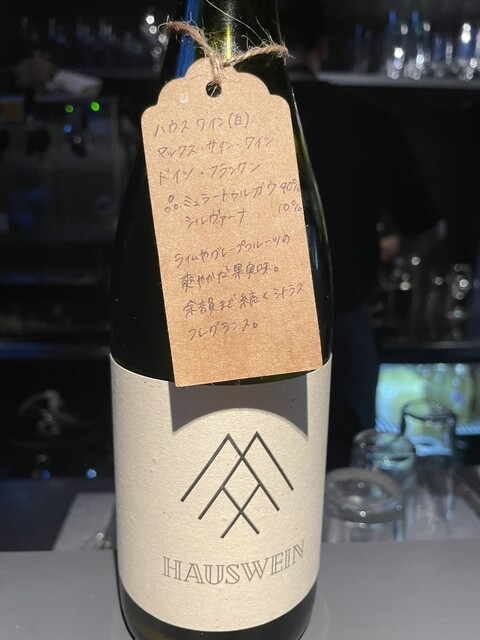 ハウスワイン(白)
マックス・サイン・ワイン
ドイツ・フランケン
ミュラートゥルガウ 90%
シルヴァーナ 10%
ライムやグレープフルーツの
爽やかな果実味。
余韻まで続くシトラス
フレグランス。
HAUSWEIN